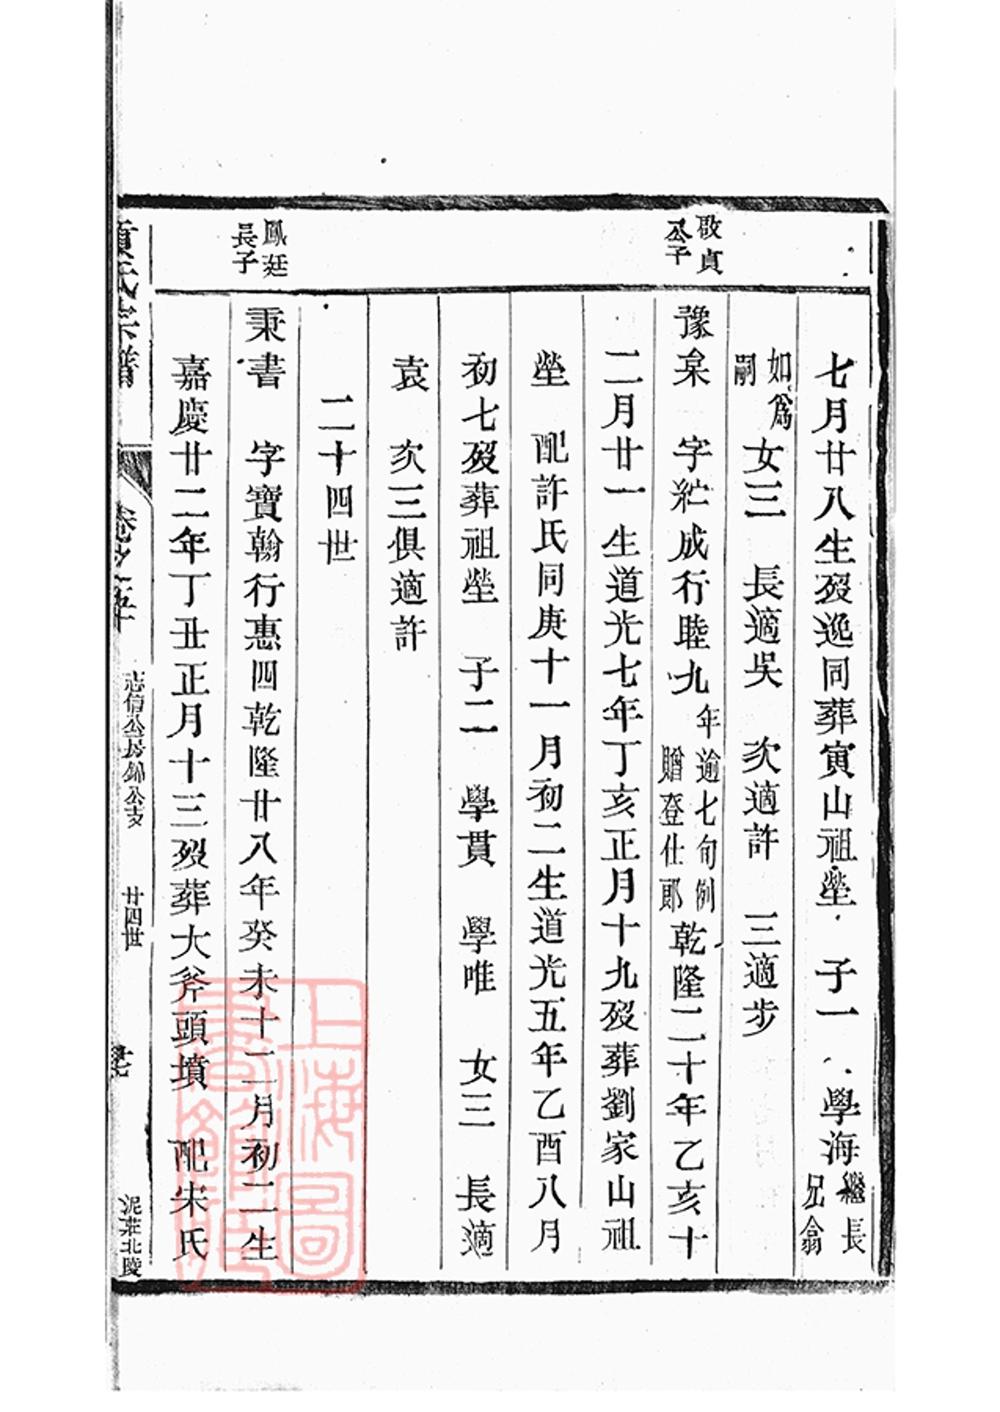 敬貞
公子
七月廿八生歿逸同葬寅山祖塋 子一 學海繼長兄翕
如為嗣女三 長適吳 次適許 三適步
豫泉 字紀成行睦九年逾七旬例贈登仕郎乾隆二十年乙亥十
二月廿一生道光七年丁亥正月十九歿葬劉家山祖
塋 配許氏同庚十一月初二生道光五年乙酉八月
初七歿葬祖塋 子二 學貫 學唯 女三 長適
袁 次三俱適許
二十四世
鳳廷
長子
秉書 字寶翰行惠四乾隆廿八年癸未十二月初二生
嘉慶廿二年丁丑正月十三歿葬大斧頭墳 配宋氏
氏宗譜
卷之五
志信公房錦公支
廿四世
泥莊北陵
上海圖書館藏